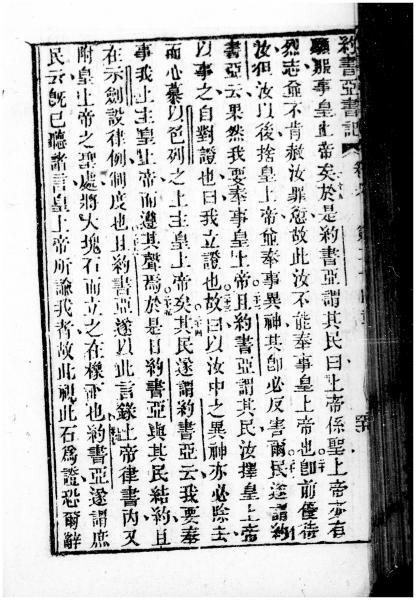 約書亞書記
願服事皇上帝矣於是約書亞謂其民曰上帝係聖上帝亦有
烈志爺不肯赦汝罪愆故此汝不能奉事皇上帝也卽前優待
汝但汝以後捨皇上帝爺奉事異神其卽必反害爾民遂謂約
書亞云果然我要奉事皇上帝且約書亞謂其民汝擇皇上帝
以事之自對證也曰我立證也故曰以汝中之異神亦必除去
而心慕以色列之上主皇上帝矣其民遂謂約書亞云我要奉
事我上主皇上帝而遵其聲焉於是日約書亞與其民結約且
在示劍設律例制度也且約書亞遂以此言錄上帝律書內又
附皇上帝之聖處將大塊石而立之在橡樹也約書亞遂謂庶
民云既已聽諸言皇上帝所諭我者故此視此石爲證恐爾辭